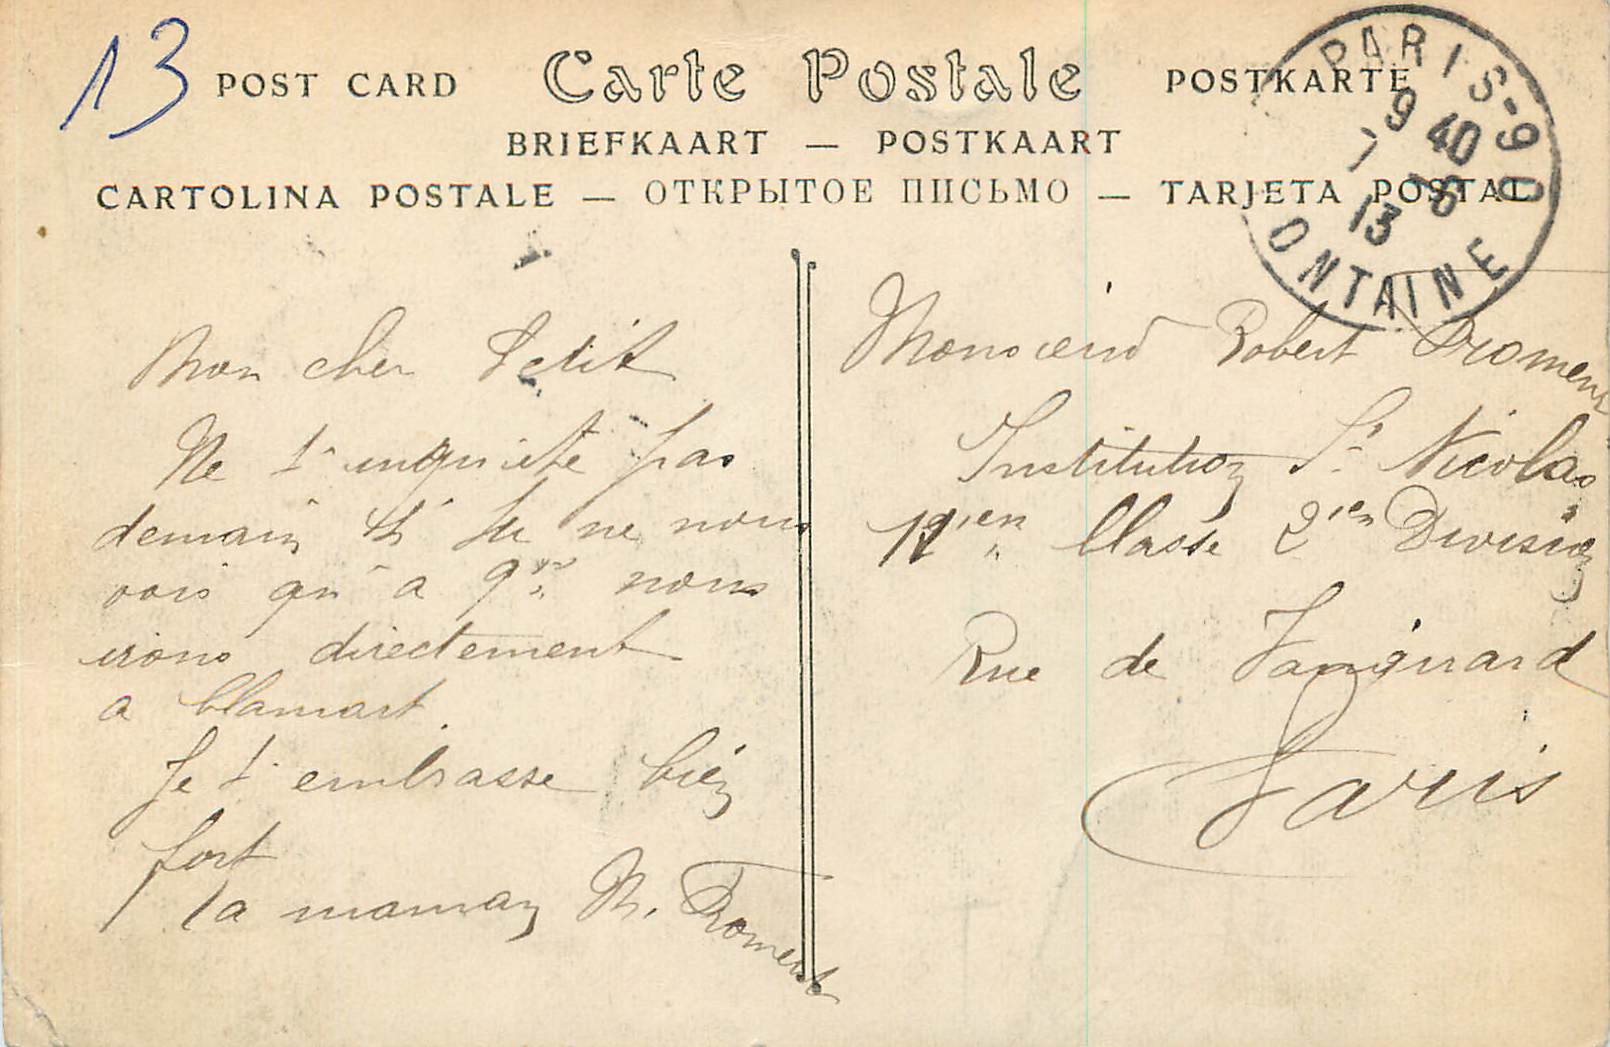 13
POST CARD Carte Postale POSTKARTE
BRIEFKAART — POSTKAART
CARTOLINA POSTALE — ОТКРЫТОЕ ПИСЬМО — TARJETA POSTAL
PARIS-90
9 40
7 - 6
13
ONTAINE
Mon cher Petit
Ne t'inquiète pas
demain si tu ne nous
vois qu'a 9 nous
irons directement
a Clamart.
Je t'embrasse bien
fort
Ta maman M. Froment
Monsieur Robert Froment
Institution St Nicolas
Classe 2ien Division
Rue de Vaugirard
Paris